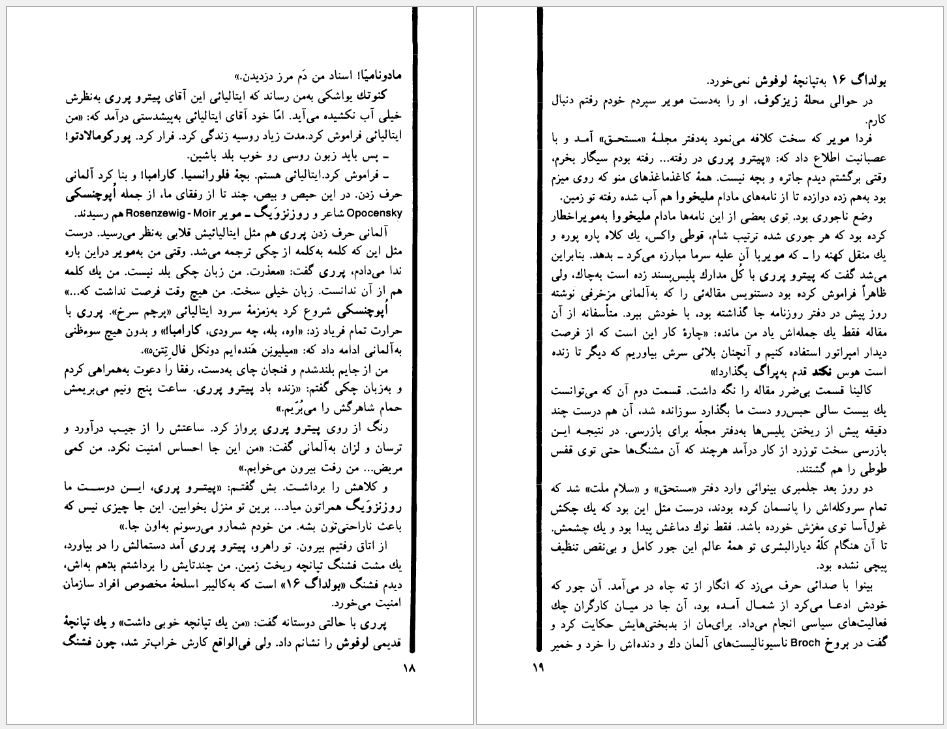 مادونامیّا! اسناد من دَم مرز دزدیدن.»
کنوتك یواشکی به‌من رساند که ایتالیائی این آقای پیترو پرری به‌نظرش
خیلی آب نکشیده می‌آید. امّا خود آقای ایتالیائی به‌پیشدستی درآمد که: «من
ایتالیائی فراموش کرد.مدت زیاد روسیه زندگی کرد. فرار کرد. پورکومالادتو!
ـ پس باید زبون روسی رو خوب بلد باشین.
ـ فراموش کرد.ایتالیائی هستم. بچهٔ فلورانسیا. کارامبا! و بنا کرد آلمانی
حرف زدن. در این حیص و بیص، چند تا از رفقای ما، از جمله اُپوچنسکی
Opocensky شاعر و روزنزوَیگ ـ مویر Rosenzewig - Moir هم رسیدند.
آلمانی حرف زدن پرری هم مثل ایتالیائیش قلابی به‌نظر می‌رسید. درست
مثل این که کلمه به‌کلمه از چکی ترجمه می‌شد. وقتی من به‌مویر دراین باره
ندا می‌دادم، پرری گفت: «معذرت. من زبان چکی بلد نیست. من یك کلمه
هم از آن ندانست. زبان خیلی سخت. من هیچ وقت فرصت نداشت که...»
اُپوچنسکی شروع کرد به‌زمزمهٔ سرود ایتالیائی «پرچم سرخ». پرری با
حرارت تمام فریاد زد: «اوه، بله، چه سرودی، کارامبا!» و بدون هیچ سوءظنی
به‌آلمانی ادامه داد که: «میلیونِن هَنده‌ایم دونکل فال‌تِتن».
من از جایم بلندشدم و فنجان چای به‌دست، رفقا را دعوت به‌همراهی کردم
و به‌زبان چکی گفتم: «زنده باد پیترو پرری. ساعت پنج ونیم می‌بریمش
حمام شاهرگش را می‌بُرّیم.»
رنگ از روی پیترو پرری پرواز کرد. ساعتش را از جیب درآورد و
ترسان و لرزان به‌آلمانی گفت: «من این جا احساس امنیت نکرد. من کمی
مریض... من رفت بیرون می‌خوابم.»
و کلاهش را برداشت. بش گفتم: «پیترو پرری، این دوست ما
روزنزوَیگ همراتون میاد... برین تو منزل بخوابین. این جا چیزی نیس که
باعث ناراحتی‌تون بشه. من خودم شمارو می‌رسونم به‌اون جا.»
از اتاق رفتیم بیرون. تو راهرو، پیترو پرری آمد دستمالش را در بیاورد،
یك مشت فشنگ تپانچه ریخت زمین. من چندتایش را برداشتم بدهم به‌اش،
دیدم فشنگ «بولداگ ۱۶» است که به‌کالیبر اسلحهٔ مخصوص افراد سازمان
امنیت می‌خورد.
پرری با حالتی دوستانه گفت: «من یك تپانچه خوبی داشت» و یك تپانچهٔ
قدیمی لوفوش را نشانم داد. ولی فی‌الواقع کارش خراب‌تر شد، چون فشنگ
۱۸
بولداگ ۱۶ به‌تپانچهٔ لوفوش نمی‌خورد.
در حوالی محلهٔ زیزکوف، او را به‌دست مویر سپردم خودم رفتم دنبال
کارم.
فردا مویر که سخت کلافه می‌نمود به‌دفتر مجلهٔ «مستحق» آمد و با
عصبانیت اطلاع داد که: «پیترو پرری در رفته... رفته بودم سیگار بخرم،
وقتی برگشتم دیدم جاتره و بچه نیست. همهٔ کاغذماغذهای منو که روی میزم
بود به‌هم زده دوازده تا از نامه‌های مادام ملیخووا هم آب شده رفته تو زمین.
وضع ناجوری بود. توی بعضی از این نامه‌ها مادام ملیخووا به‌مویراخطار
کرده بود که هر جوری شده ترتیب شام، قوطی واکس، یك کلاه پاره پوره و
یك منقل کهنه را ـ که مویربا آن علیه سرما مبارزه می‌کرد ـ بدهد. بنابراین
می‌شد گفت که پیترو پرری با کُل مدارك پلیس‌پسند زده است به‌چاك، ولی
ظاهراً فراموش کرده بود دستنویس مقاله‌ئی را که به‌آلمانی مزخرفی نوشته
روز پیش در دفتر روزنامه جا گذاشته بود، با خودش ببرد. متأسفانه از آن
مقاله فقط یك جمله‌اش یاد من مانده: «چارهٔ کار این است که از فرصت
دیدار امپراتور استفاده کنیم و آنچنان بلائی سرش بیاوریم که دیگر تا زنده
است هوس نکند قدم به‌پراگ بگذارد!»
کالینا قسمت بی‌ضرر مقاله را نگه داشت. قسمت دوم آن که می‌توانست
یك بیست سالی حبس‌رو دست ما بگذارد سوزانده شد، آن هم درست چند
دقیقه پیش از ریختن پلیس‌ها به‌دفتر مجلّه برای بازرسی. در نتیجه این
بازرسی سخت توزرد از کار درآمد هرچند که آن مشنگ‌ها حتی توی قفس
طوطی را هم گشتند.
دو روز بعد جلمبری بینوائی وارد دفتر «مستحق» و «سلام ملت» شد که
تمام سروکله‌اش را پانسمان کرده بودند، درست مثل این بود که یك چکش
غول‌آسا توی مغزش خورده باشد. فقط نوك دماغش پیدا بود و یك چشمش.
تا آن هنگام کلّهٔ دیارالبشری تو همهٔ عالم این جور کامل و بی‌نقص تنظیف
پیچی نشده بود.
بینوا با صدائی حرف می‌زد که انگار از ته چاه در می‌آمد. آن جور که
خودش ادعا می‌کرد از شمال آمده بود، آن جا در میان کارگران چك
فعالیت‌های سیاسی انجام می‌داد. برای‌مان از بدبختی‌هایش حکایت کرد و
گفت در بروخ Broch ناسیونالیست‌های آلمان دك و دنده‌اش را خرد و خمیر
۱۹